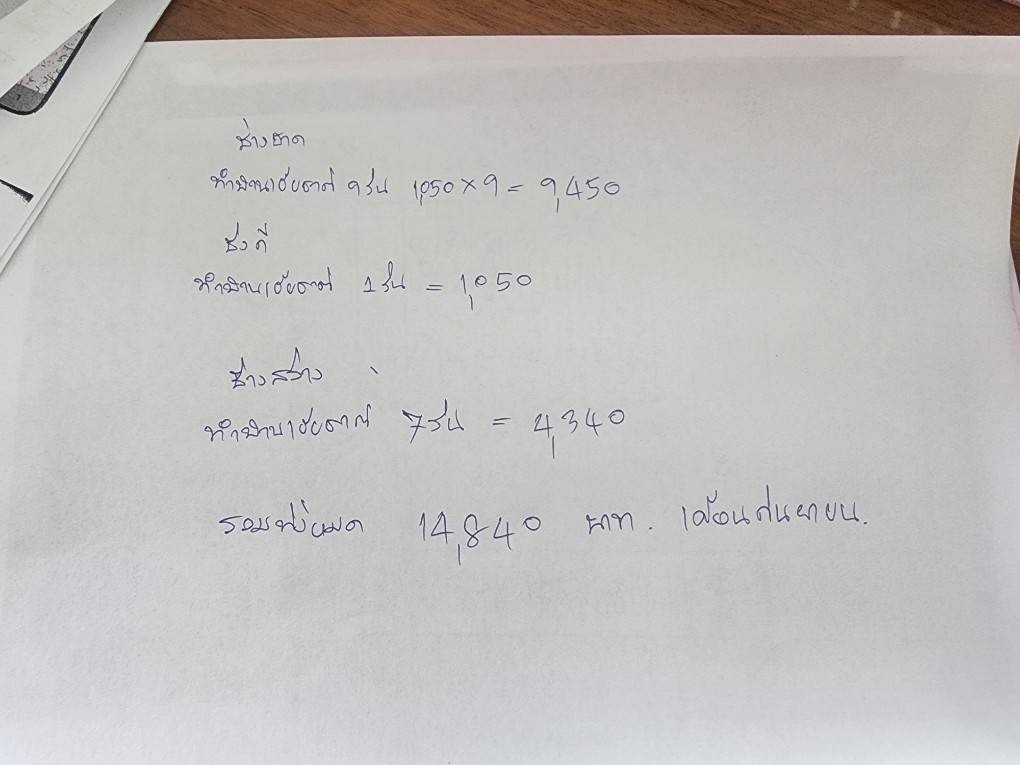 ช่างฮาด
ทำบ้านเชิงดาต์ 9 วัน 1,050 × 9 = 9,450
ช่างดี
ทำบ้าน 1 วัน = 1,050
ช่างสว่าง
ทำบ้าน 7 วัน = 4,340
รวมทั้งหมด 14,840 บาท. เดือนกันยายน.